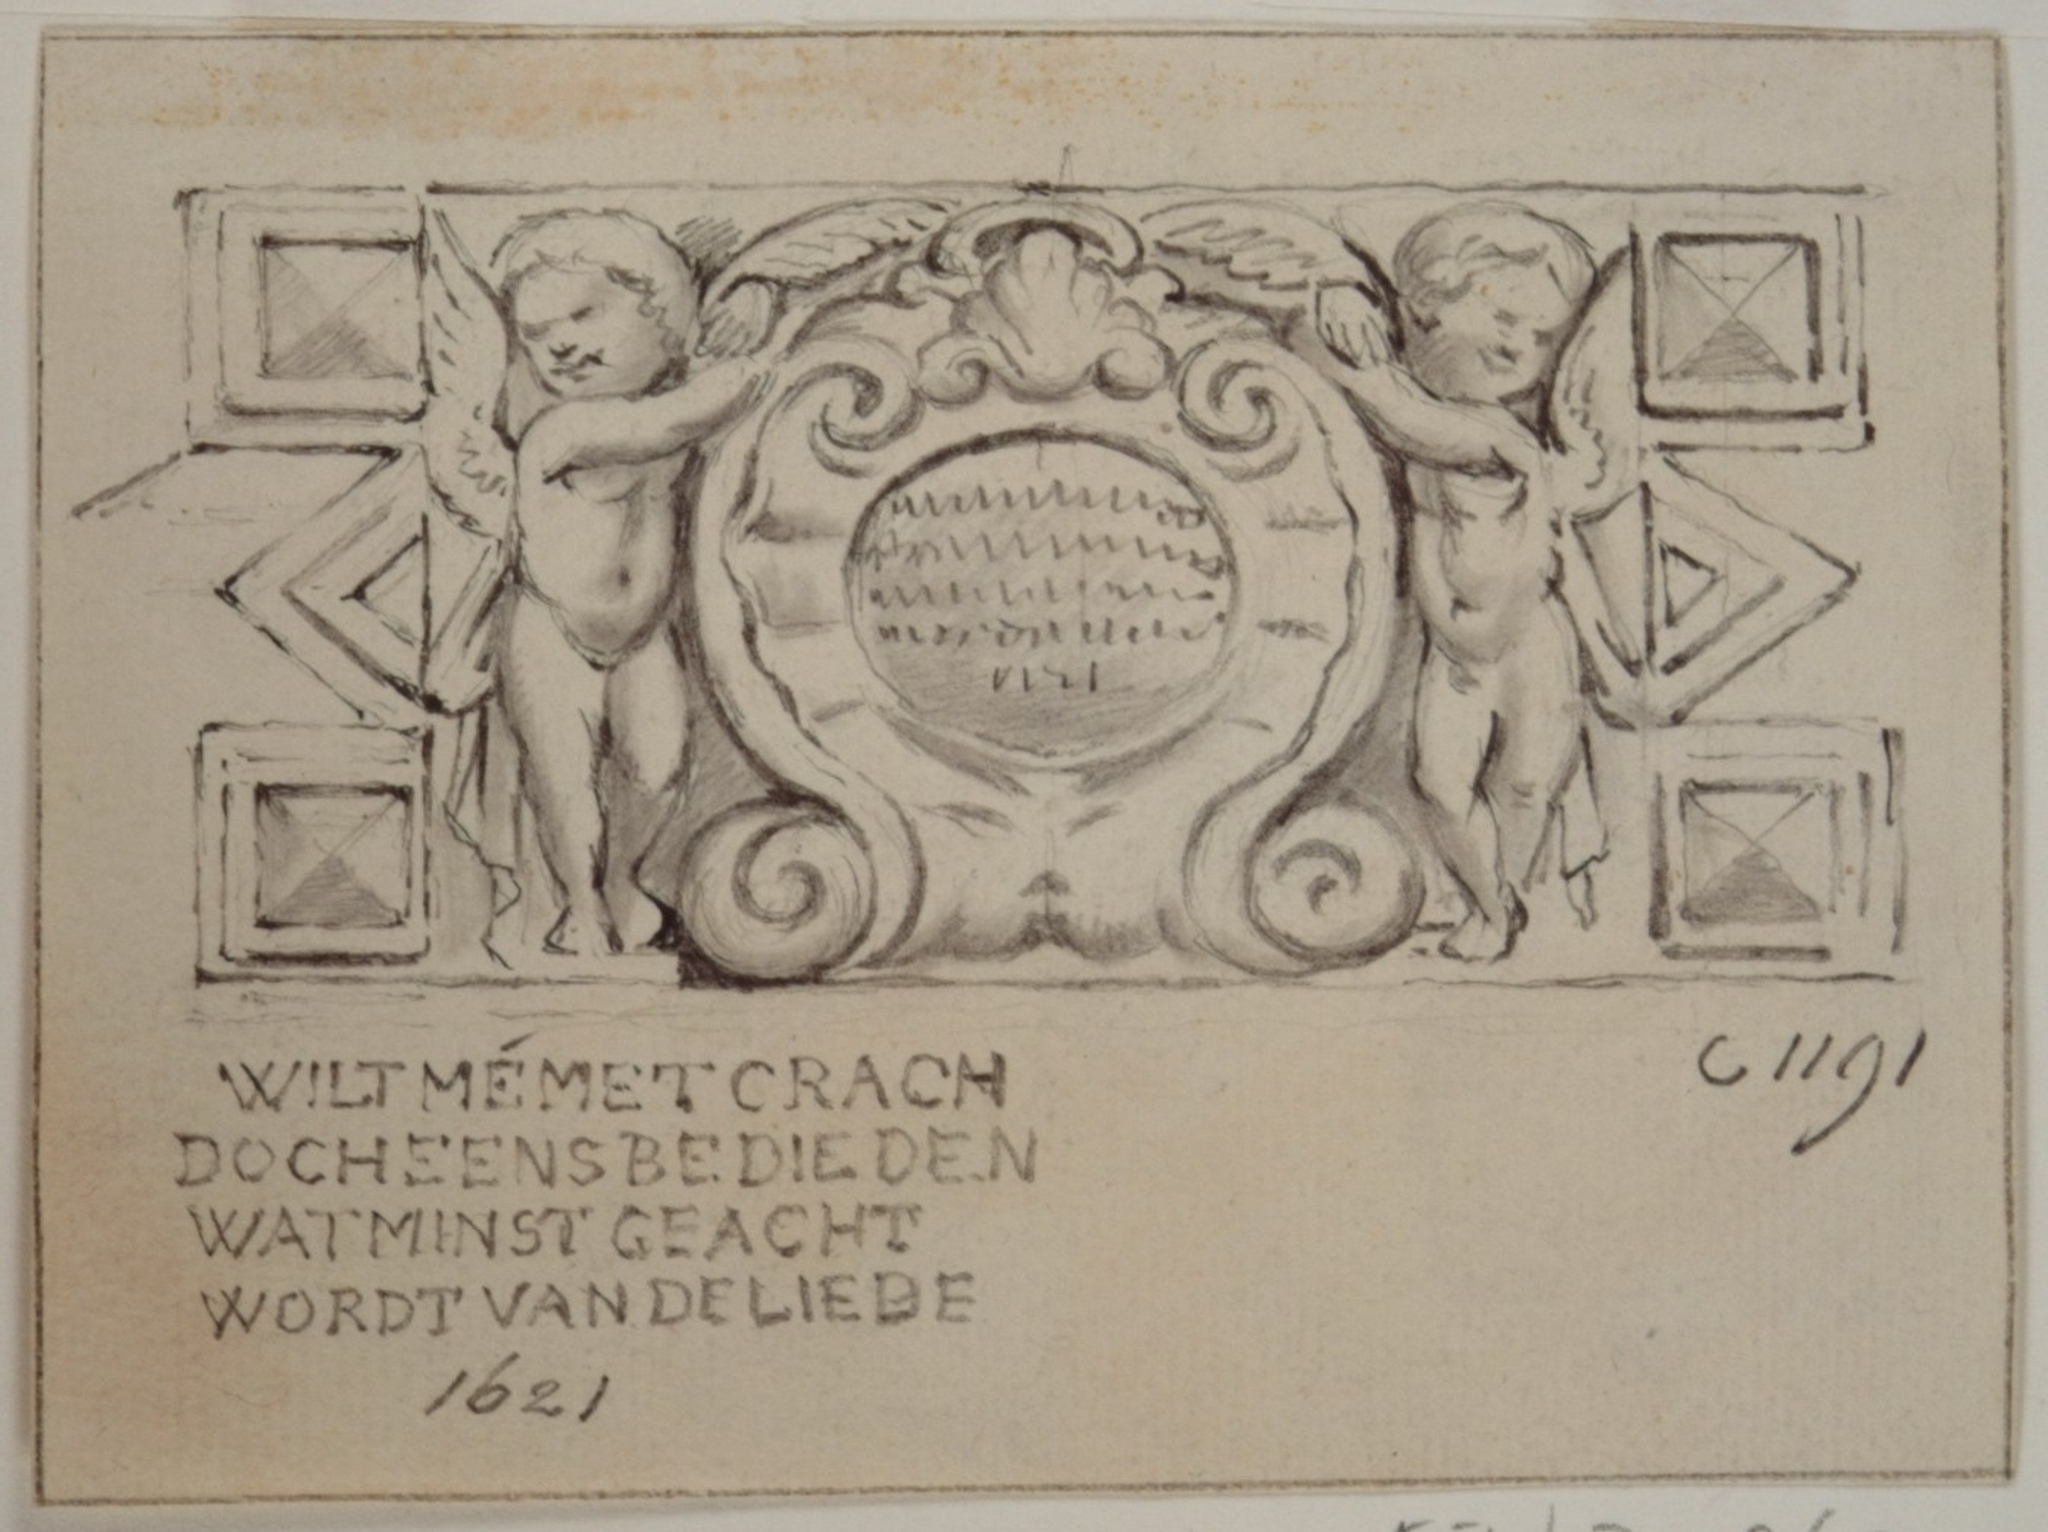 C 1191
WILT MÉ MET CRACH
DOCH EENS BEDIEDEN
WAT MINST GEACHT
WORDT VAN DE LIEDE
1621